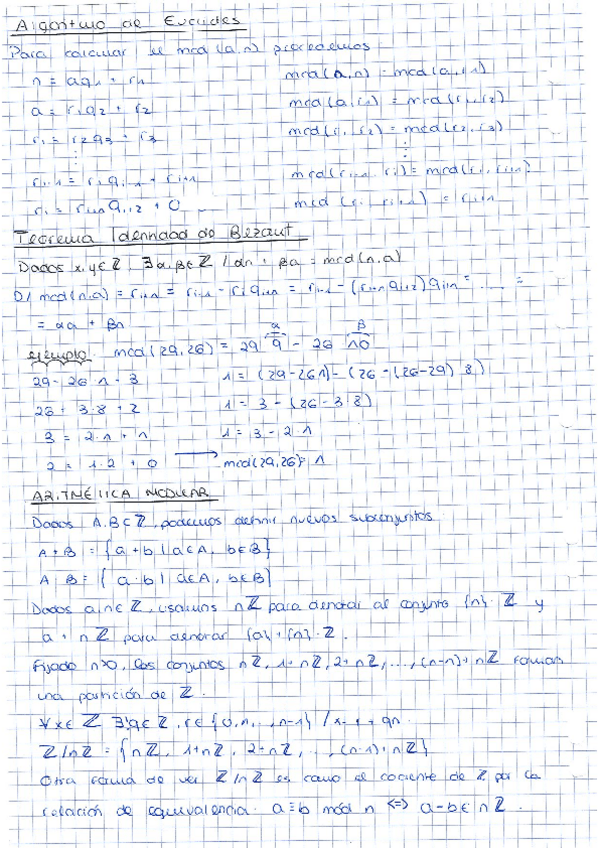 Algoritmo de Euclides
Para calcular el mcd (a,n) procedemos
n = aq1 + r1 mcd(a,n) = mcd(a,r1)
a = r1q2 + r2 mcd(a,r1) = mcd(r1,r2)
r1 = r2q3 + r3 mcd(r1,r2) = mcd(r2,r3)
⋮ ⋮
ri-1 = riqi+1 + ri+1 mcd(ri-1,ri) = mcd(ri,ri+1)
ri = ri+1qi+2 + 0 mcd(ri,ri+1) = ri+1
Teorema Identidad de Bezaut
Dados x,y∈ℤ, ∃α,β∈ℤ / αn + βa = mcd(n,a)
D/ mcd(n,a) = ri+1 = ri-1 - riqi+1 = ri-1 - (ri+1qi+2)qi+1 = ..... =
= αa + βn
α β
ejemplo mcd(29,26) = 29 9 - 26 10
29 = 26·1 + 3 1 = (29-26·1)-(26-(26-29)·8)
26 = 3·8 + 2 1 = 3 - (26-3·8)
3 = 2·1 + 1 1 = 3 - 2·1
2 = 1·2 + 0 → mcd(29,26)= 1
ARITMÉTICA MODULAR
Dados A,B⊂ℤ, podemos definir nuevos subconjuntos
A+B = {a+b | a∈A, b∈B}
A·B = {a·b | a∈A, b∈B}
Dados a,n∈ℤ, usamos nℤ para denotar al conjunto {n}·ℤ y
a + nℤ para denotar {a}+{n}·ℤ.
Fijado n>0, los conjuntos nℤ, 1+nℤ, 2+nℤ, ..., (n-1)+nℤ forman
una partición de ℤ.
∀x∈ℤ ∃!q∈ℤ, r∈{0,1,..,n-1} / x = r + qn.
ℤ/nℤ = {nℤ, 1+nℤ, 2+nℤ, .., (n-1)+nℤ}
Otra forma de ver ℤ/nℤ es como el cociente de ℤ por la
relación de equivalencia. a≡b mód n <=> a-b∈nℤ.